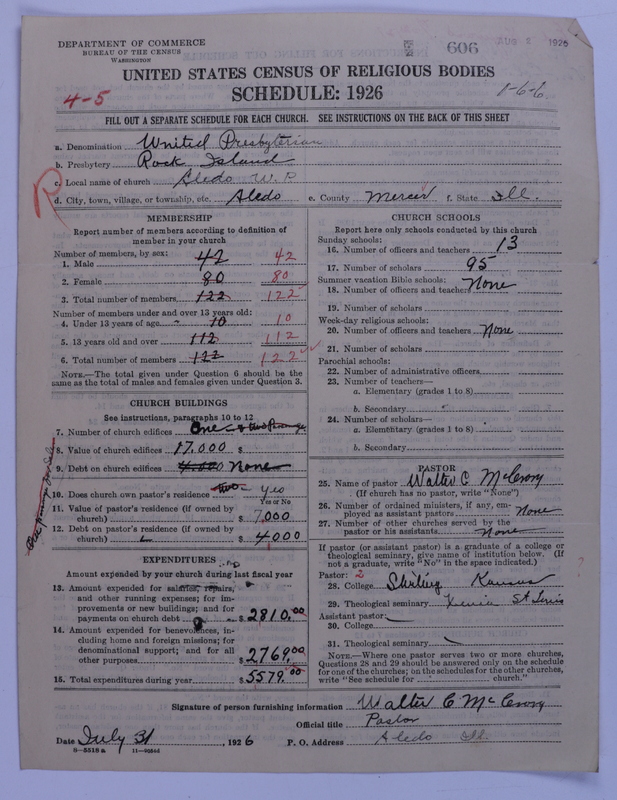 DEPARTMENT OF COMMERCE
BUREAU OF THE CENSUS
WASHINGTON
606
AUG 2 1926
UNITED STATES CENSUS OF RELIGIOUS BODIES
4-5
SCHEDULE: 1926
1-6-6
FILL OUT A SEPARATE SCHEDULE FOR EACH CHURCH. SEE INSTRUCTIONS ON THE BACK OF THIS SHEET
a. Denomination United Presbyterian
b. Presbytery Rock Island
R
c. Local name of church Aledo U. P
d. City, town, village, or township, etc. Aledo e. County Mercer f. State Ill.
MEMBERSHIP
Report number of members according to definition of
member in your church
Number of members, by sex:
1. Male 42 42
2. Female 80 80
3. Total number of members 122 122
Number of members under and over 13 years old:
4. Under 13 years of age 10 10
5. 13 years old and over 112 112
6. Total number of members 122 122
NOTE.—The total given under Question 6 should be
same as the total of males and females given under Question 3.
CHURCH BUILDINGS
See instructions, paragraphs 10 to 12
7. Number of church edifices One
8. Value of church edifices 17.000 $
9. Debt on church edifices 4.000 None
10. Does church own pastor's residence two Yes
Yes or No
11. Value of pastor's residence (if owned by
church) $ 7,000
12. Debt on pastor's residence (if owned by
church) $ 4,000
EXPENDITURES
Amount expended by your church during last fiscal year
13. Amount expended for salaries, repairs,
and other running expenses; for im-
provements or new buildings; and for
payments on church debt $ 2810.00
14. Amount expended for benevolences, in-
cluding home and foreign missions; for
denominational support; and for all
other purposes $ 2769.00
15. Total expenditures during year $ 5579.00
CHURCH SCHOOLS
Report here only schools conducted by this church
Sunday schools:
16. Number of officers and teachers 13
17. Number of scholars 95
Summer vacation Bible schools:
18. Number of officers and teachers None
19. Number of scholars
Week-day religious schools:
20. Number of officers and teachers None
21. Number of scholars
Parochial schools:
22. Number of administrative officers
23. Number of teachers—
a. Elementary (grades 1 to 8)
b. Secondary
24. Number of scholars—
a. Elementary (grades 1 to 8)
b. Secondary
PASTOR
25. Name of pastor Walter C McCrory
(If church has no pastor, write "None")
26. Number of ordained ministers, if any, em-
ployed as assistant pastors None
27. Number of other churches served by the
pastor or his assistants None
If pastor (or assistant pastor) is a graduate of a college or
theological seminary, give name of institution below. (If
not a graduate, write "No" in the space indicated.)
?
Pastor: 2
28. College Sterling Kansas
29. Theological seminary Xenia St Louis
Assistant pastor:
30. College
31. Theological seminary
NOTE.—Where one pastor serves two or more churches,
Questions 28 and 29 should be answered only on the schedule
for one of the churches; on the schedules for the other churches,
write "See schedule for church."
Signature of person furnishing information Walter C McCrory
Official title Pastor
Date July 31, 1926 P. O. Address Aledo Ill.
8-5518 a